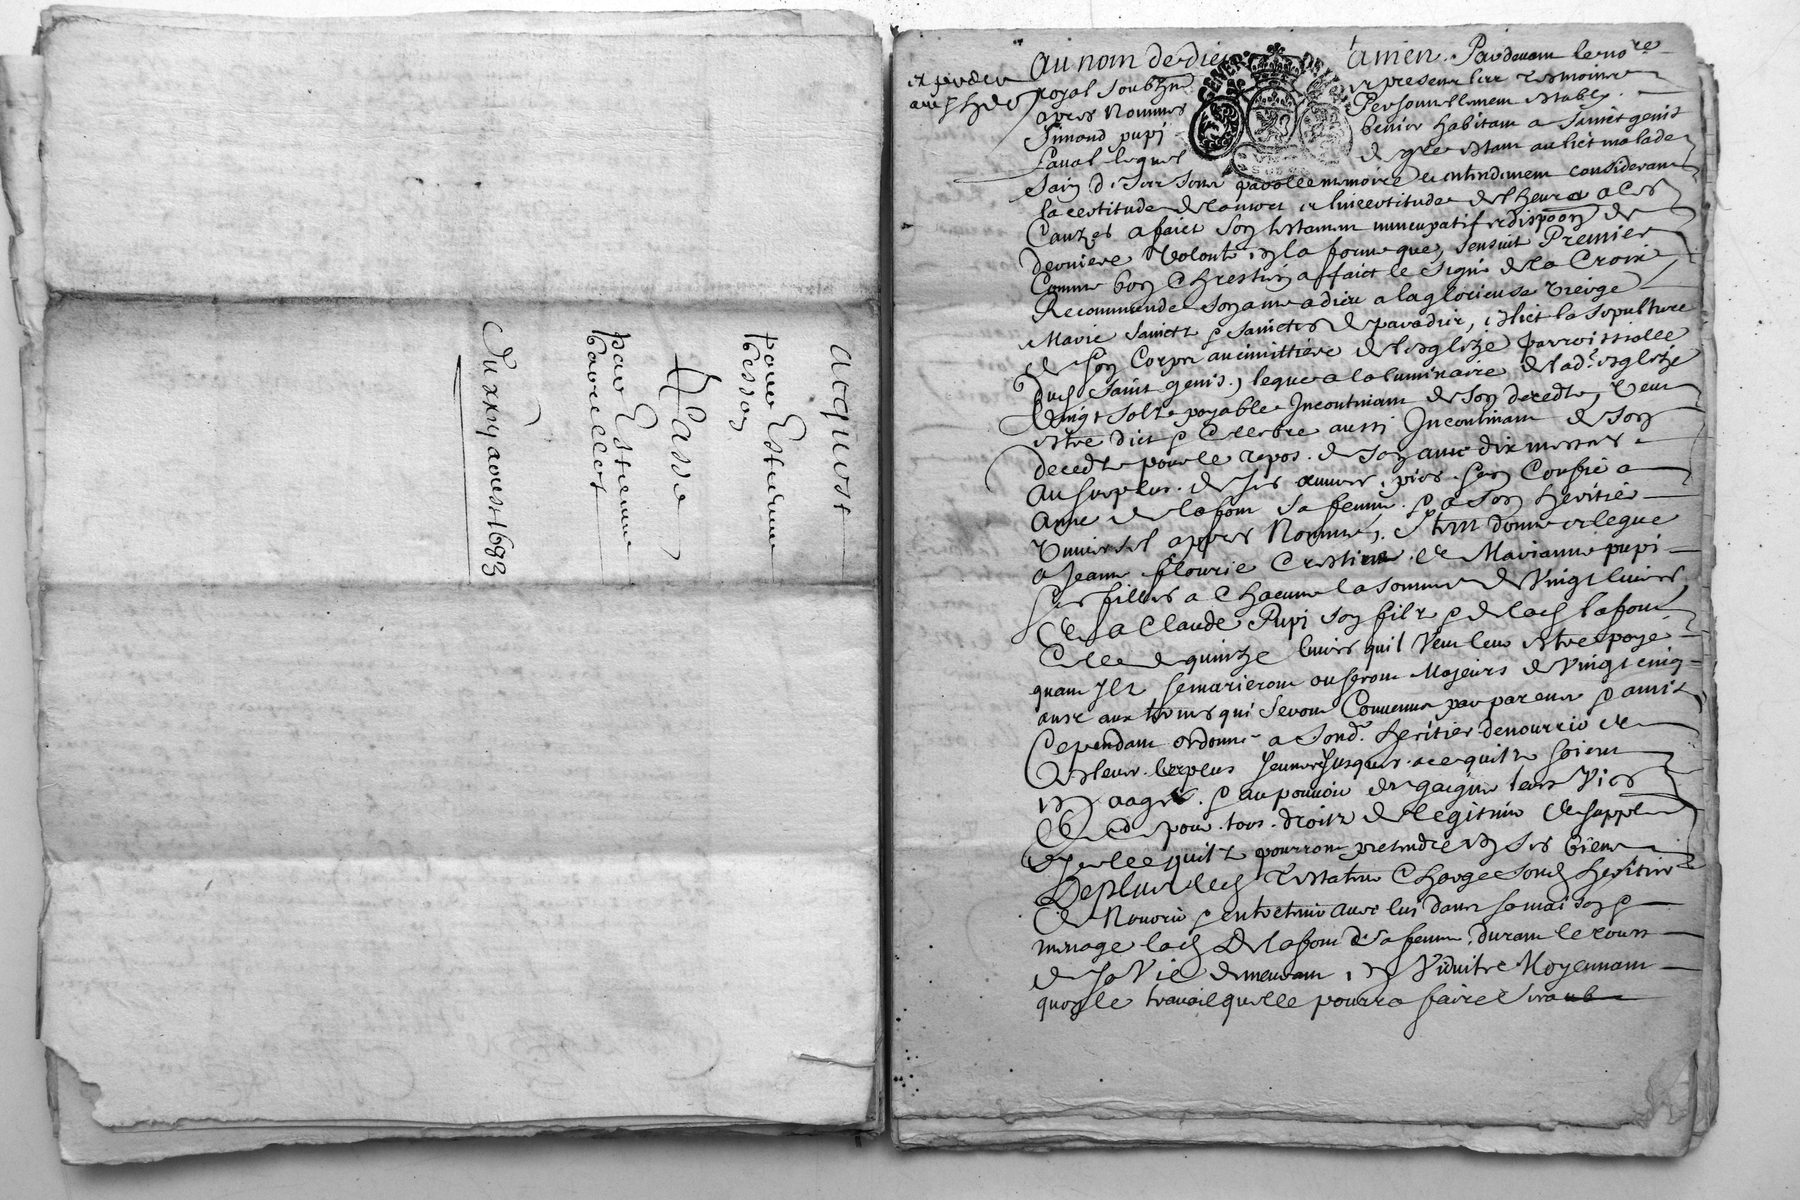 acquist
pour Estienne
besson
Casse
par Estienne
bavrellot
Du xxvij aoust 1693
expedié
aud. h
Au nom de dieu amen. Pardevant le no.re
royal soubzne. et presens les tesmoins
apres Nommes Personnellement estably
Simond pupi benier habitant a Sainct genis
Laval lequel de gre estant au lict malade
sain de ses sens parolle memoire et entendement considerant
la certitude de la mort et lincertitude de lheure a ces
Causes a faict son testament nuncupatif et dispoon de
derniere Volonte en la forme que sensuit Premier
Comme bon Chrestien a faict le signe de la Croix
Recommande son ame a dieu a la glorieuse Vierge
Marie saincts & sainctes de paradis, eslict la sepulture
de son Corps au cimittiere de lesglize parroissialle
dud Saint genis, legue a la luminaire de lad. esglize
Vingt solz payable Incontinant de son decedz, Veut
estre dict & Celebre aussi Incontinant de son
decedz pour le repos de son ame dix messes
Au surplus de ses œuvres pies sen Confie a
Anne de lafont sa femme & a son heritier
Universel apres Nomme, Item donne et legue
a Jeanne fleurie Cristine et Marianne pupi
ses filles a Chacune la somme de Vingt livres
Et a Claude Pupi son filz & de lad lafont
Celle de quinze livres quil Veut leur estre paye
quant Ilz se marieront ou seront Majeurs de Vingt cinq
ans aux termes qui seront Convenus par parens & amis
Cependant ordonne a sond. heritier de nourrir et
eslever les plus Jeunes Jusques a ce quilz soient
en aage & au pouvoir de gaigner leurs Vies
Et ce pour tous droitz de legitime et supplement
quilz pourront pretendre en ses biens
De plus led Testateur Charge sond heritier
de Nourrir & entretenir avec lui dans sa maison &
menage lad De lafont sa femme durant le cours
de sa Vie demeurant en Viduite Moyennant
quoy le travail quelle pourra faire sera